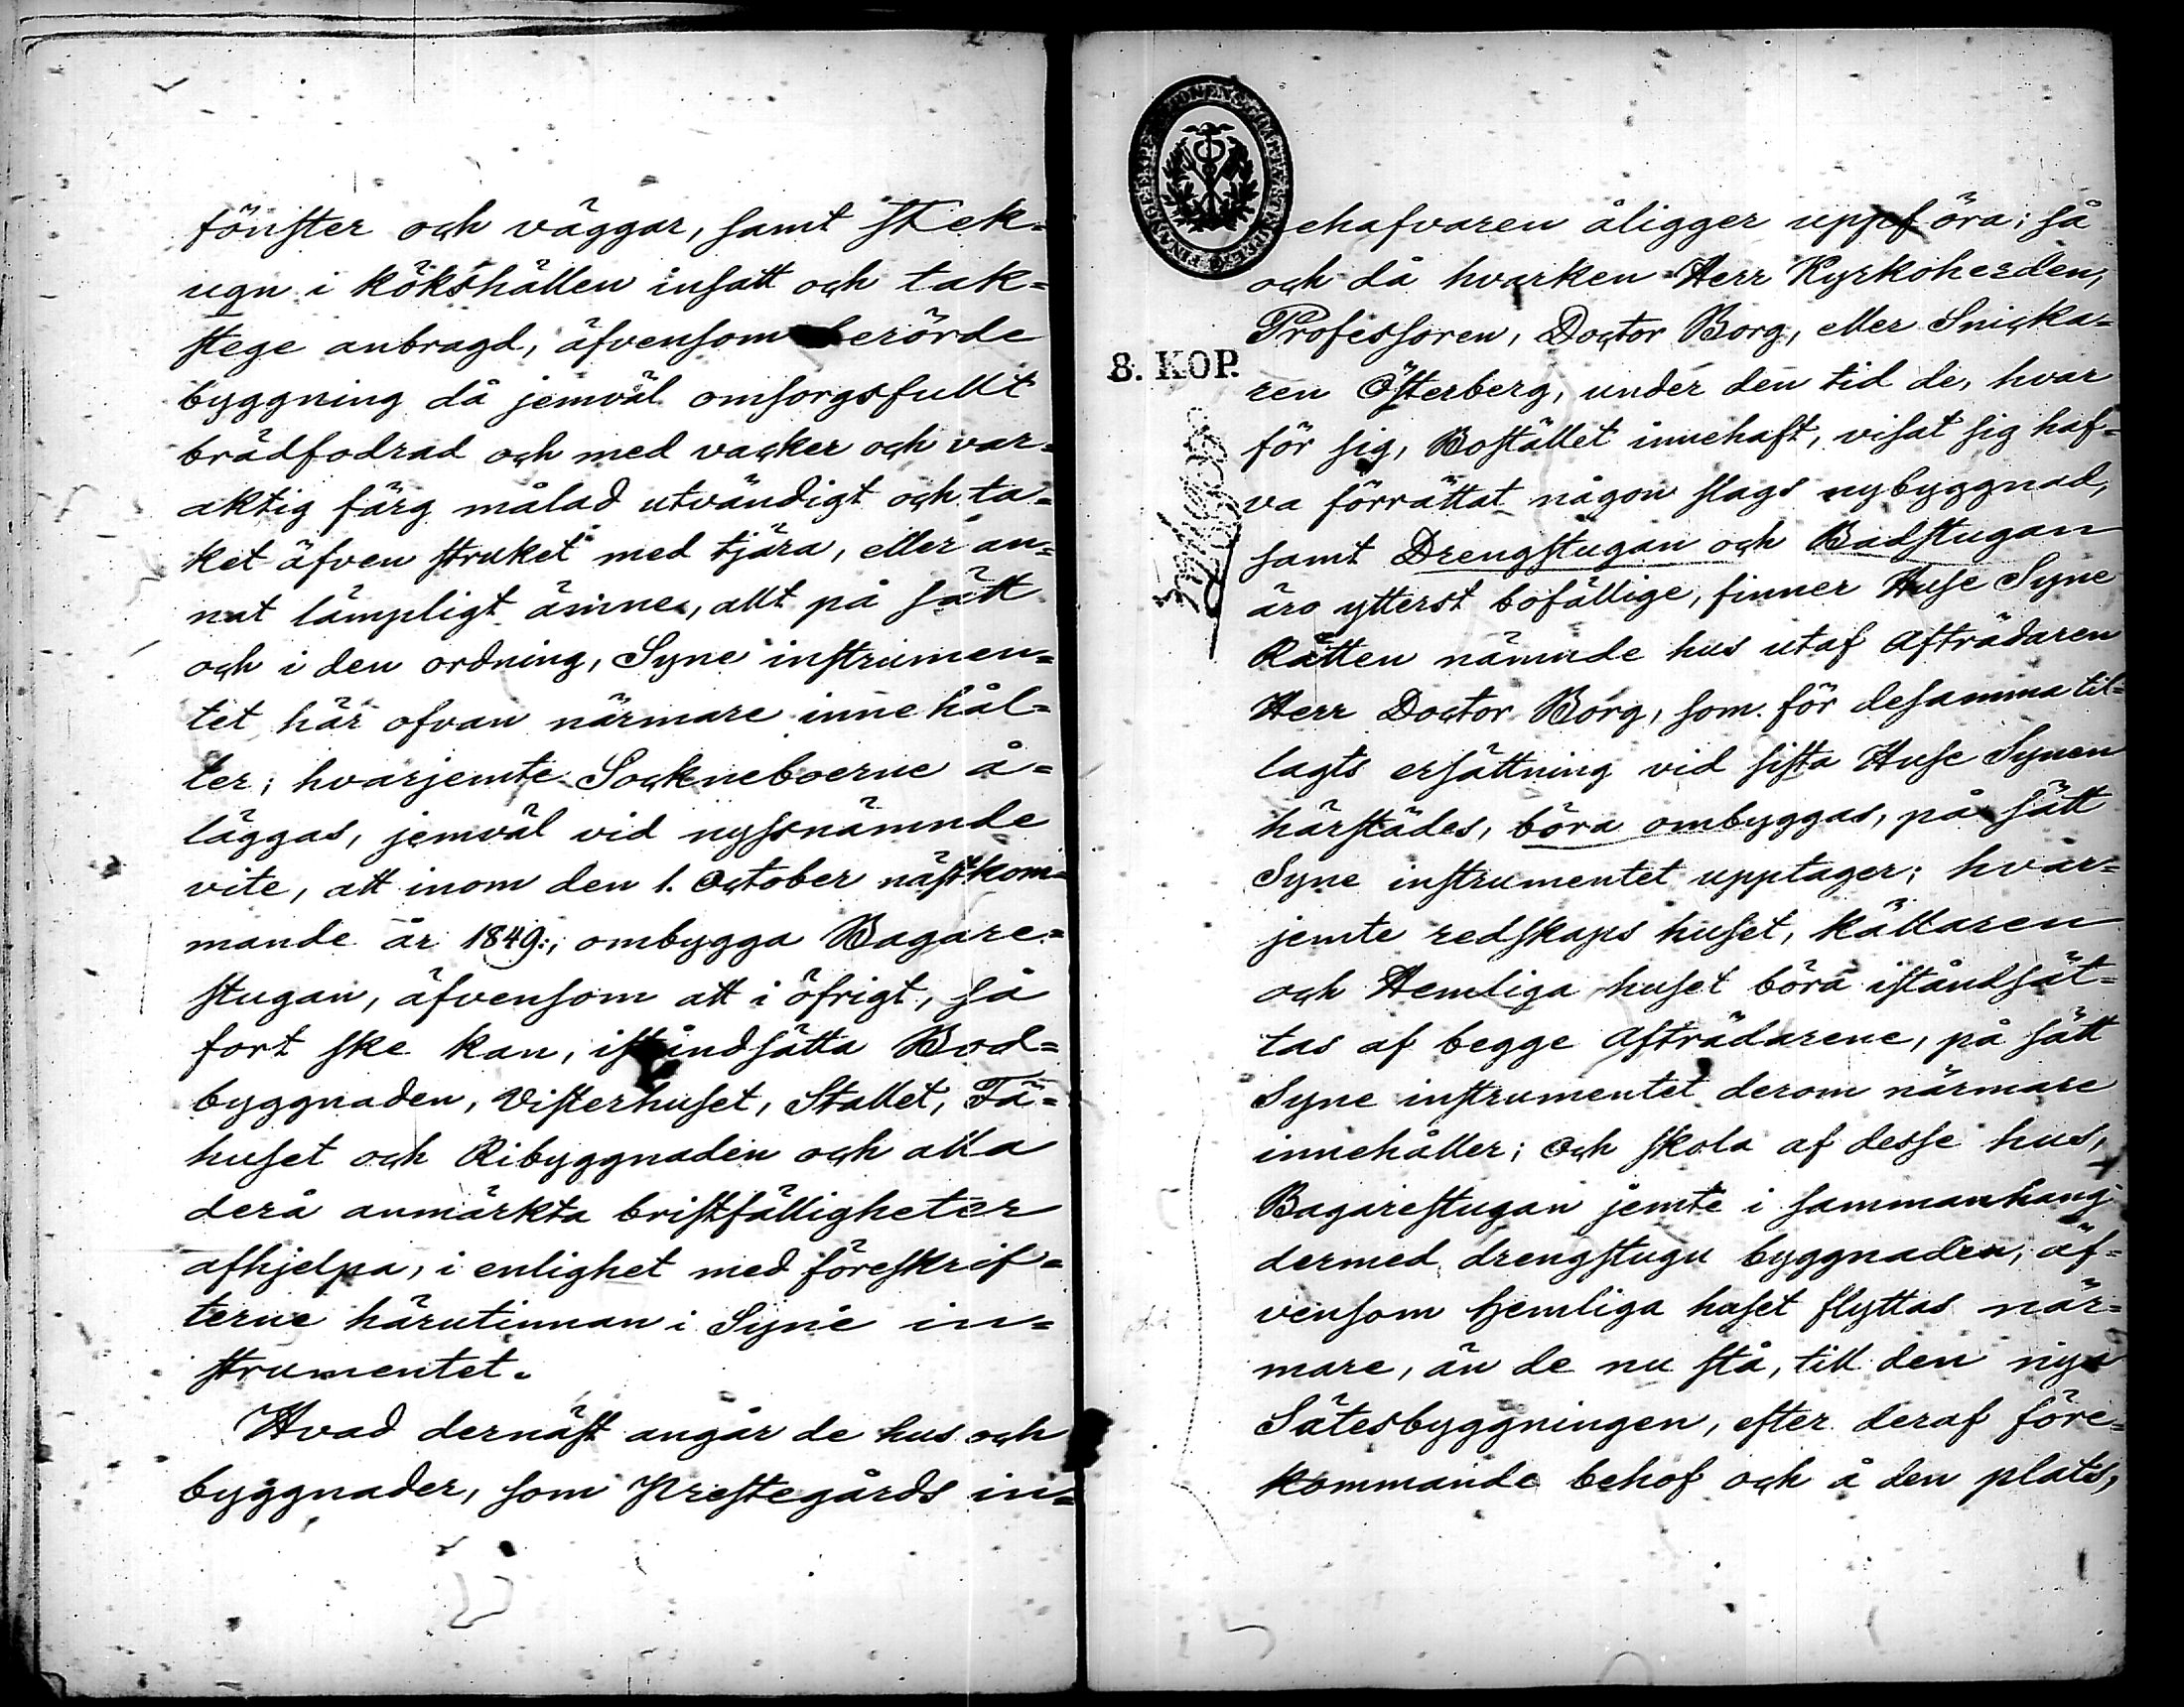 fönster och väggar, samt stek=
ugn i kökshällen insatt och tak=
stege anbragd, äfvensom berörde
byggning då jemväl omsorgsfullt
brädfodrad och med vacker och var=
aktig färg målad utvändigt och ta=
ket äfven struket med tjära, eller an=
nat lämpligt ämne, allt på sätt
och i den ordning, Syne instrumen=
tet här ofvan närmare innehål=
ler; hvarjemte Sockneboerne å=
läggas, jemväl vid nyssnämnde
vite, att inom den 1. October nästkom=
mande år 1849:, ombygga Bagare=
stugan, äfvensom att i öfrigt, så
fort ske kan, iståndsätta Bod=
byggnaden, Visterhuset, Stallet, Fä=
huset och Ribyggnaden och alla
derå anmärkta bristfälligheter
afhjelpa, i enlighet med föreskrif=
terne härutinnan i Syne in=
strumentet.
Hvad dernäst angår de hus och
byggnader, som Prestegårds in=
8. KOP.
ehafvaren åligger uppföra; så
och då hvarken Herr Kyrkoherden,
Professoren, Doctor Borg, eller Snicka=
ren Österberg, under den tid de, hvar
för sig, Bostället innehaft, visat sig haf=
va förrättat någon slags nybyggnad,
samt Drengstugan och Badstugan
äro ytterst bofällige, finner Huse Syne
Rätten nämnde hus utaf Afträdaren
Herr Doctor Borg, som för desamma til=
lagts ersättning vid sista Huse Synen
härstädes, böra ombyggas, på sätt
Syne instrumentet upptager; hvar=
jemte redskaps huset, källaren
och Hemliga huset böra iståndsät=
tas af begge Afträdarene, på sätt
Syne instrumentet derom närmare
innehåller; Och skola af desse hus,
Bagarestugan jemte i sammanhang
dermed drengstugu byggnaden, äf=
vensom hemliga huset flyttas när=
mare, än de nu stå, till den nya
Sätesbyggningen, efter deraf före=
kommande behof och å den plats,